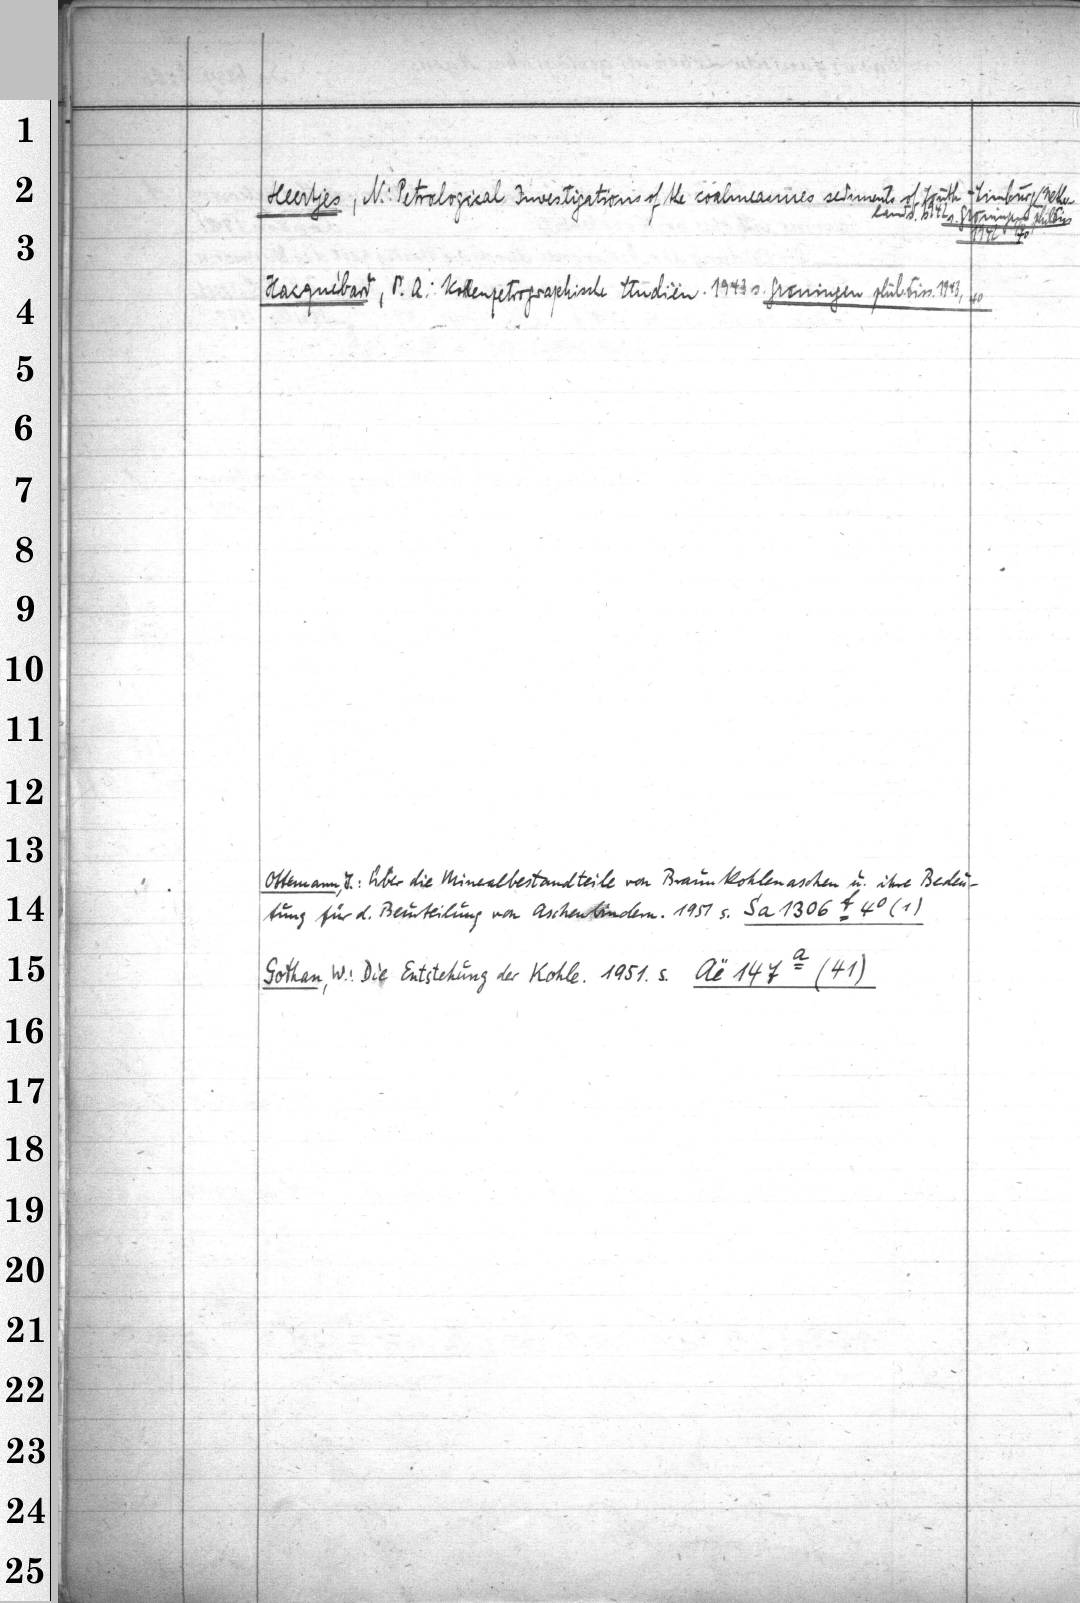 1
2
Heertjes, N.: Petrological Investigations of the coalmeasures sediments of South-Limburg (Nether-
lands. 1942 s. Groningen phil. Diss
1942 4o
3
Hacquébard, P. A.: Kolenpetrographische Studiën. 1943 s. Groningen phil. Diss. 1943, 4o
4
5
6
7
8
9
10
11
12
13
Ottemann, J.: Über die Mineralbestandteile von Braunkohlenaschen u. ihre Bedeu-
14
tung für d. Beurteilung von Aschenbindern. 1951 s. Sa 1306 f 4o (1)
15
Gothan, W.: Die Entstehung der Kohle. 1951. s. Aë 147 a (41)
16
17
18
19
20
21
22
23
24
25